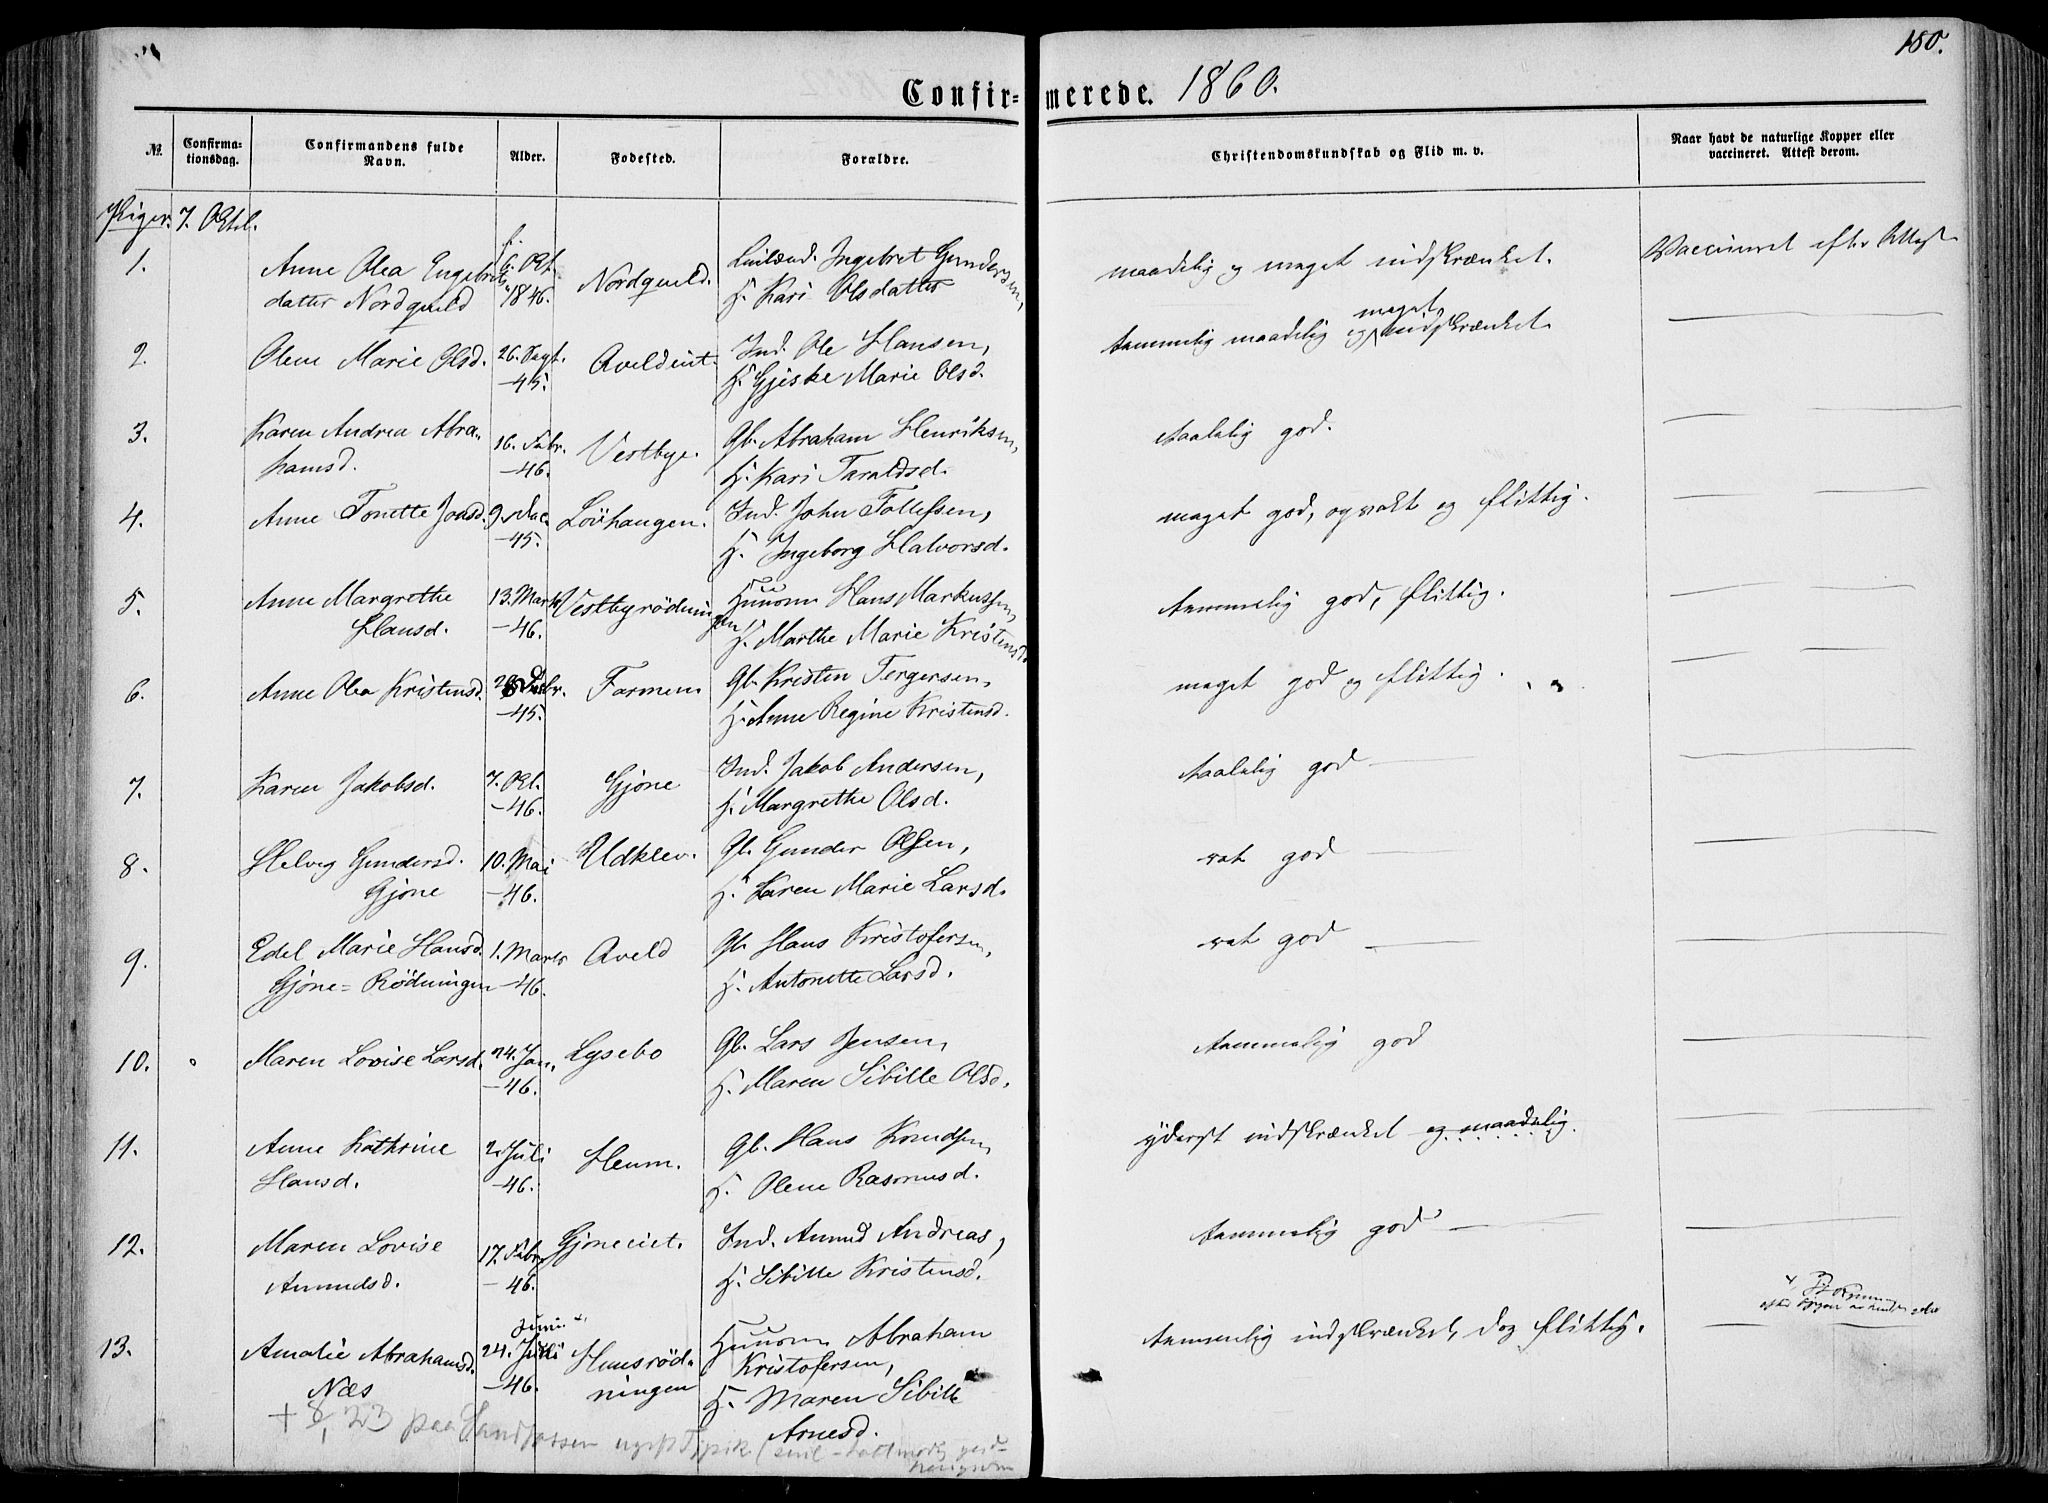 180.
Confir=merede. 1860.
No. Confirmationsdag. Confirmandens fulde Navn. Alder. Fødested. Forældre. Christendomskundskab og Flid m. v. Naar havt de naturlige Kopper eller vaccineret. Attest derom.
Piger. 7. Octb.
1. Anne Olea Engebrets Oct. Nordqueld. Ingebret Gundersen, maadelig og meget indskrænket. Vaccineret efter Attest
datter Nordqueld 1846. H. Kari Olsdatter
meget
2. Olene Marie Olsd. 26. Sept. Aveldeiet. Ind. Ole Hansen, temmelig maadelig og indskrænket
—45. H. Gjiske Marie Olsd.
3. Karen Andrea Abra= 16. Febr. Vestbye. Gb. Abraham Henriksen, taalelig god.
hamsd. —46. H. Kari Taraldsd.
4. Anne Tonette Jonsd. 9. Dec. Lövhaugen. Ind. John Tollefsen, meget god, opvakt og flittig.
—45. H. Ingeborg Halvorsd.
5. Anne Margrethe 13. Marts Vestbyrödningen Huusm. Hans Markussen, temmelig god, flittig.
Hansd. —46. H. Marthe Marie Kristensd.
6. Anne Olea Kristensd. Farmen Gb. Kristen Tergersen, meget god og flittig.
—45. H. Anne Regine Kristensd.
7. Karen Jakobsd. 7. Oct. Gjöne Ind. Jakob Andersen, taalelig god —
—46. H. Margrethe Olsd.
8. Helvig Gundersd. 10. Mai Udklev. Gb. Gunder Olsen, ret god —
Gjöne —46. H. Karen Marie Larsd.
9. Edel Marie Hansd. 1. Marts Aveld Gb. Hans Kristofersen, ret god —
Gjöne=Rödningen —46. H. Antonette Larsd.
10. Maren Lovise Larsd. 24. Jan. Lysebo Gb. Lars Jensen, temmelig god
—46. H. Maren Sibille Olsd.
11. Anne Kathrine 2. Juli Heum. Gb. Hans Knudsen yderst indskrænket og maadelig.
Hansd. —46. H. Olene Rasmusd.
12. Maren Lovise 17. Febr. Gjöneeiet. Ind. Amund Andreas, temmelig god —
Amundsd. —46. H. Sibille Kristensd.
Juni
13. Amalie Abrahamsd. 24. Juli Huusröd= Huusm. Abraham temmelig indskrænket, dog flittig.
Næs —46. ningen Kristofersen,
H. Maren Sibille
Arnesd.
+ 8/1 23 paa